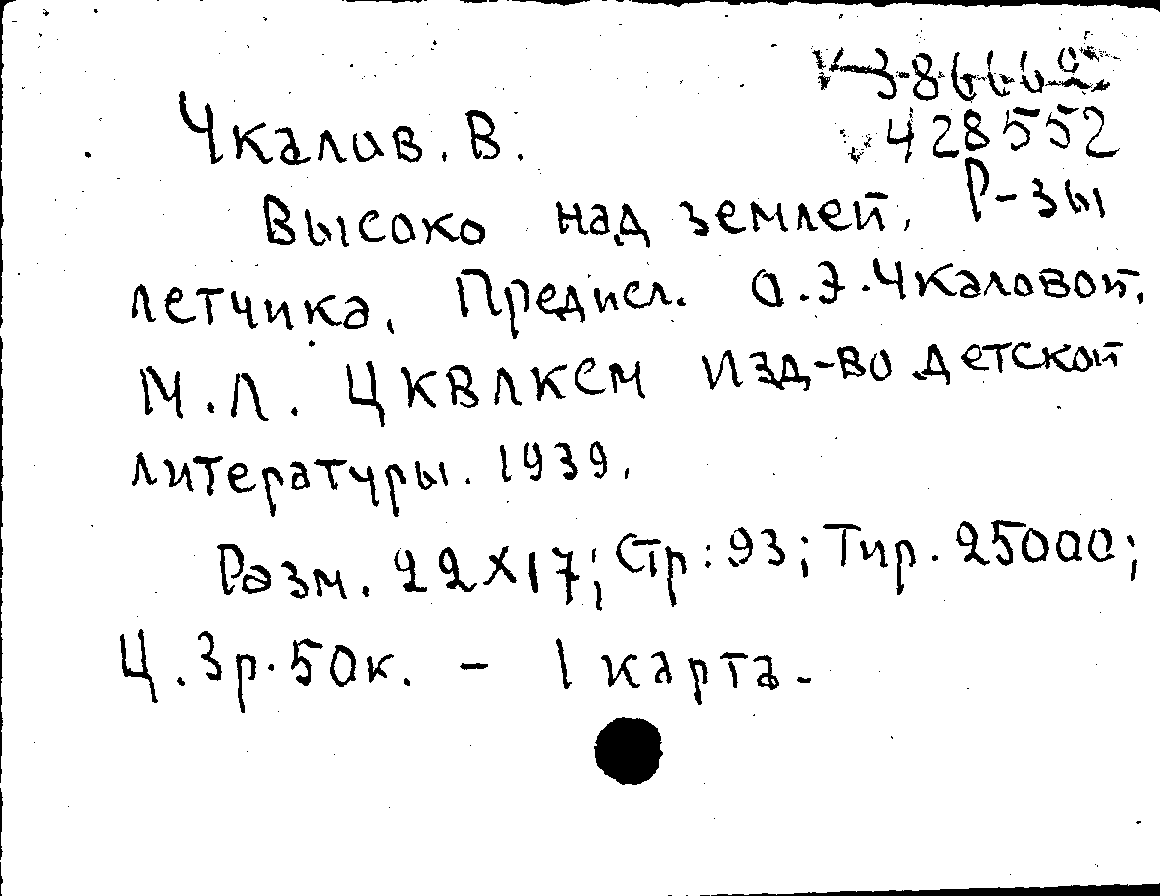 V 386662
Чкалов. В. V 428552
Высоко над землей. Р-зы
летчика. Предисл. О.Э.Чкаловой.
М.Л. ЦКВЛКСМ Изд-во детской
литературы. 1939.
Разм. 22х17; Стр: 93; Тир. 25000;
Ц. 3р.50к. - 1 карта.